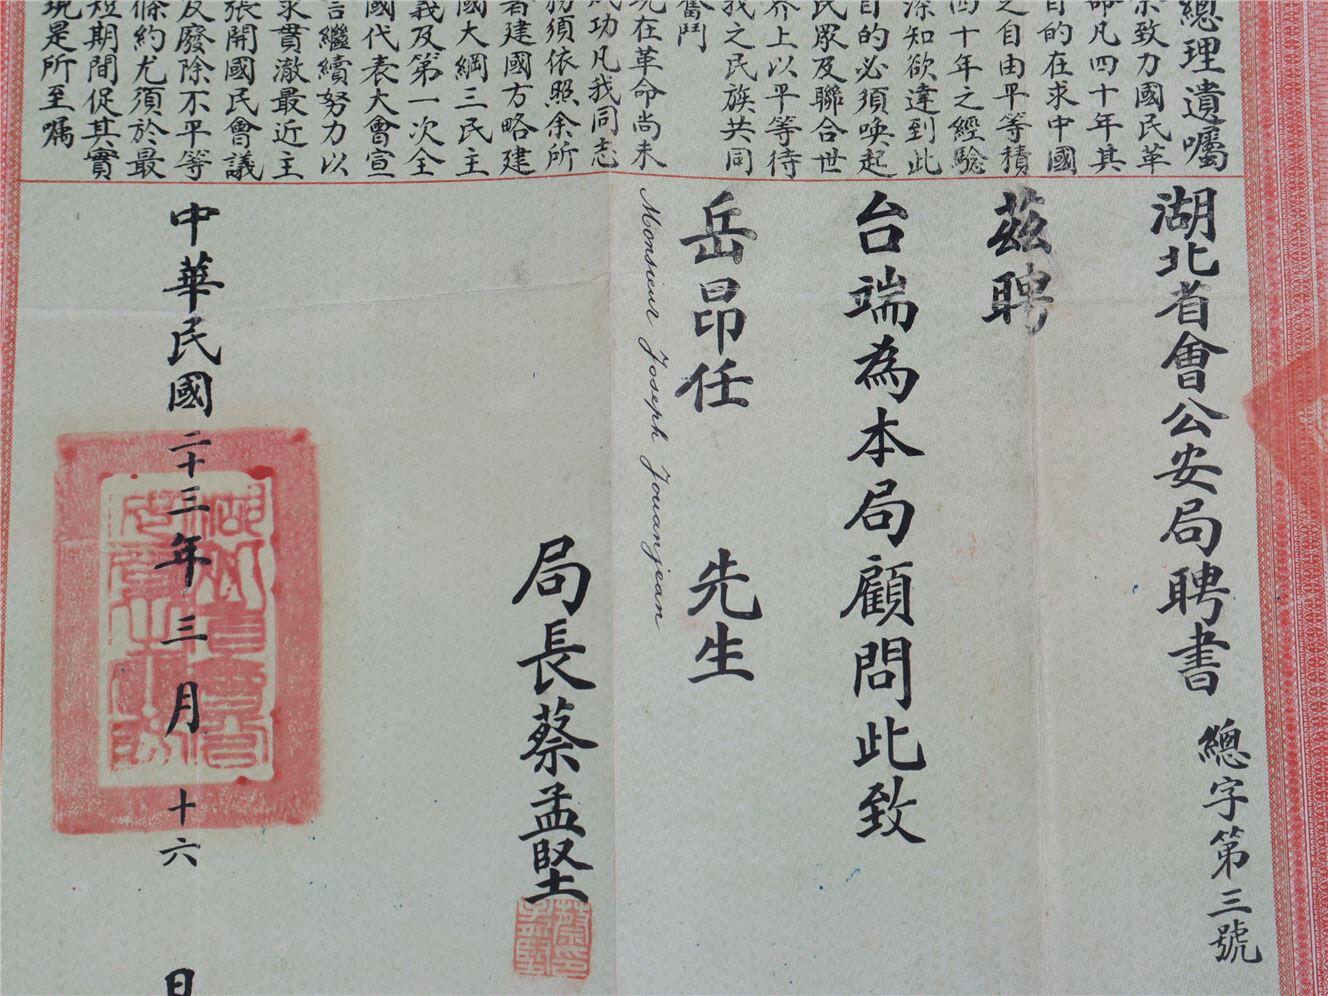 總理遺囑
余致力國民革
命凡四十年其
目的在求中國
之自由平等積
四十年之經驗
深知欲達到此
目的必須喚起
民眾及聯合世
界上以平等待
我之民族共同
奮鬥
現在革命尚未
成功凡我同志
務須依照余所
著建國方略建
國大綱三民主
義及第一次全
國代表大會宣
言繼續努力以
求貫澈最近主
張開國民會議
及廢除不平等
條約尤須於最
短期間促其實
現是所至囑
湖北省會公安局聘書
總字第三號
茲聘
台端為本局顧問此致
岳昂任 先生
Monsieur Joseph Jouanjean
局長蔡孟堅
中華民國二十三年三月十六日